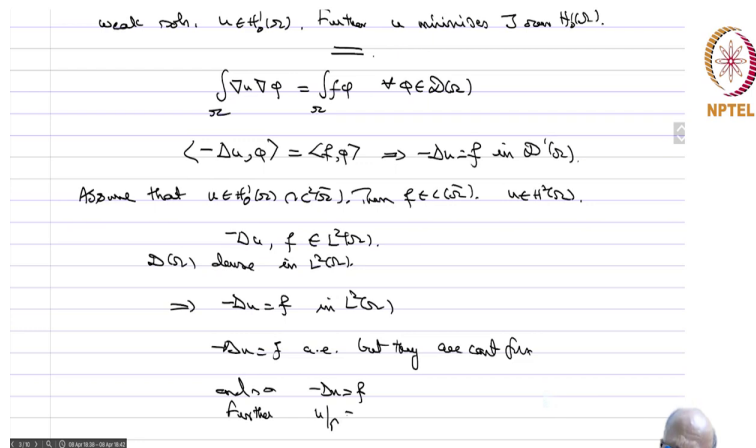 weak soln. u ∈ H₀¹(Ω). Further u minimises J over H₀¹(Ω).
∫_Ω ∇u ∇φ = ∫_Ω fφ ∀ φ ∈ 𝒟(Ω)
NPTEL
⟨-Δu, φ⟩ = ⟨f, φ⟩ ⟹ -Δu = f in 𝒟'(Ω).
Assume that u ∈ H₀¹(Ω) ∩ C²(Ω̄). Then f ∈ C(Ω̄). u ∈ H²(Ω).
-Δu, f ∈ L²(Ω).
𝒟(Ω) dense in L²(Ω).
⟹ -Δu = f in L²(Ω)
-Δu = f a.e. but they are cont fun
and so -Δu = f
Further u|_Γ =
3 / 10
09 Apr 18:38 - 09 Apr 18:42